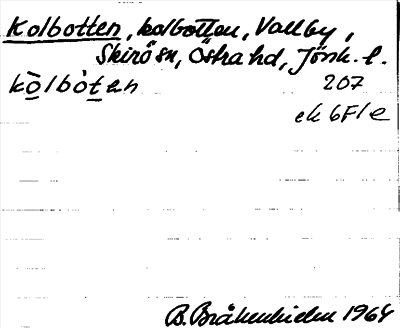 Kolbotten, kolbotten, Vallby,
Skirö sn, Östra hd, Jönk. l.
kò̱lbòt̠en 207
ek 6F1e
B. Bråkenhielm 1964